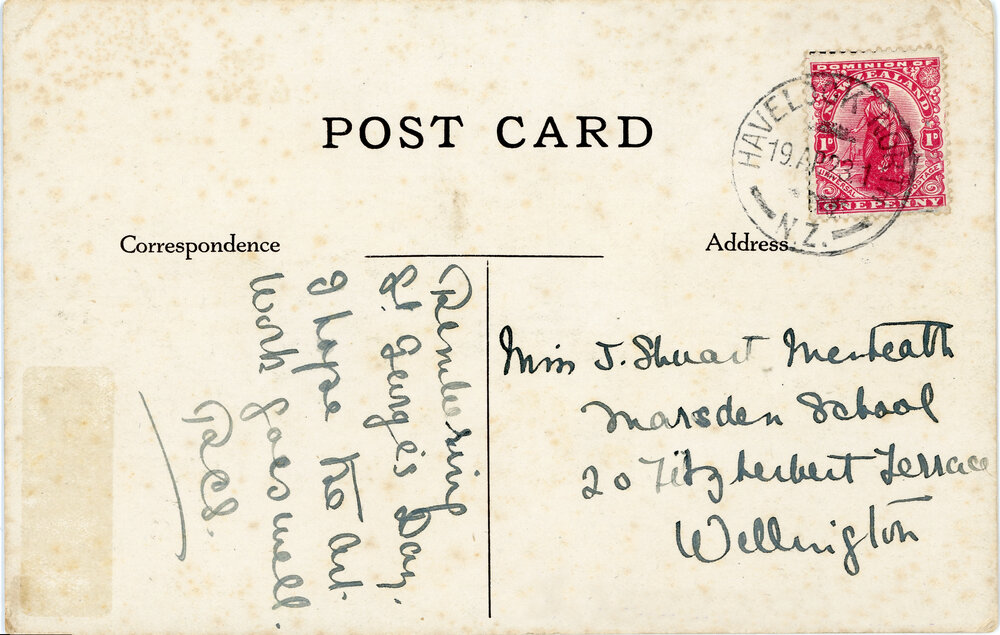 POST CARD
Correspondence
Address
DOMINION OF
NEW ZEALAND
1D 1D
UNIVERSAL POSTAGE
ONE PENNY
19 AP 23
N.Z.
Remembering
St. George's Day.
I hope the Art
Work goes well.
Miss J. Stuart Menteath
Marsden School
20 Fitzherbert Terrace
Wellington